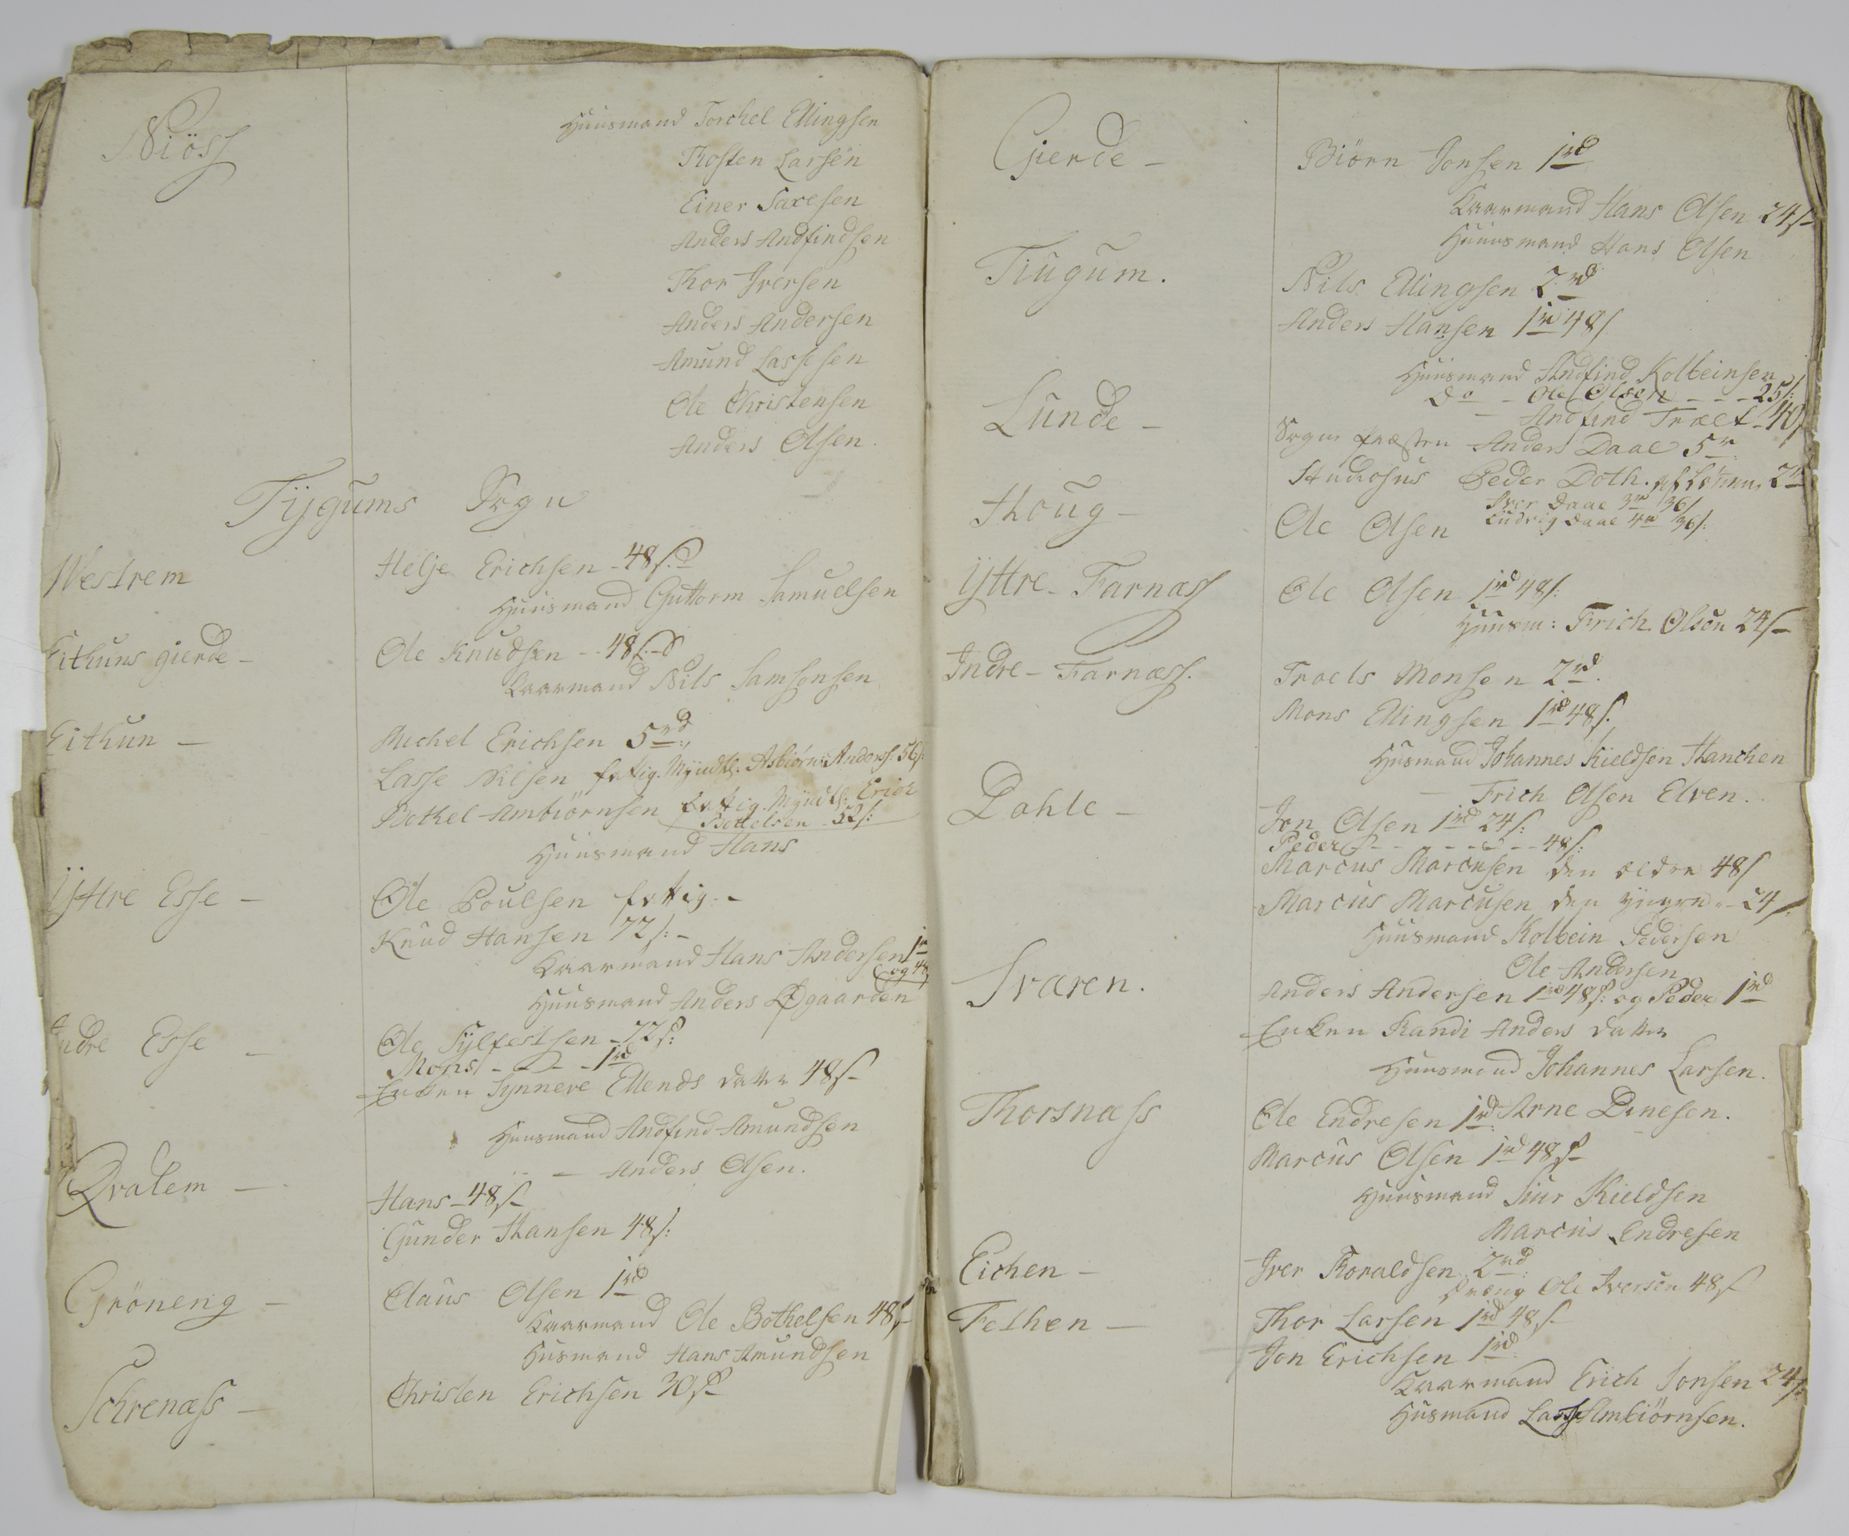 Niöss
Huusmand Torchel Ellingsen
Thosten Larsen
Einer Saxesen
Anders Andfindsen
Thor Iversen
Anders Andersen
Amund Lassesen
Ole Christensen
Anders Olsen.
Tÿgums Sogn
Westrem
Helje Erichsen - 48 s.
Huusmand Guttorm Samuelsen
Eithuns gierde -
Ole Knudsen - 48 s.
Kaarmand Nils Samsonsen
Eithun -
Michel Erichsen 5 rd
Lasse Nilsen fattig. Myndtl. Asbiørn Anders. 56 s.
Bothel Ambiørnsen fattig. Myndtl. Erich
Bottelsen 52 s:
Huusmand Hans
Ÿttre Esse -
Ole Poulsen fattig. -
Knud Hansen 72 s. -
Kaarmand Hans Andersen 1 rd
og 48
Huusmand Anders Ødgaarden
Indre Esse -
Ole Sylfestsen - 72 s:
Mons - - - 1 rd
Enken Synneve Ellends datter 48 s
Huusmand Andfind Amundsen
- Anders Olsen.
Qvalem -
Hans - 48 s
Gunder Hansen 48 s:
Gröneng -
Claus Olsen 1 rd
Kaarmand Ole Bothelsen 48 s
Husmand Hans Amundsen
Schrenæss -
Christen Erichsen 30 s
Gjerde -
Biörn Jonsen 1 rd
Kaarmand Hans Olsen 24 s
Huusmand Hans Olsen
Tiugum.
Nils Ellingsen 2 rd
Anders Hansen 1 rd 48 s
Huusmand Andfind Kolbeinsen
do - Ole Olsen - - - 25 s:
- Andfind Træet - 40 s
Lunde -
Sogne Præsten Anders Daae 5 r
Studiosus Peder Doth. 2 r
Iver Daae 3 rd 36 s
Ludvig Daae 4 rd 36 s:
Houg -
Ole Olsen
Ÿttre - Farnæss
Ole Olsen 1 rd 48 s:
Huusm: Erich Olsen 24 s
Indre - Farnæss.
Troels Monsen 2 rd.
Mons Ellingsen 1 rd 48 s.
Husmand Johannes Kieldsen Hanchen
- Erich Olsen Elven.
Dahle -
Jon Olsen 1 rd 24 s:
Peder - - - - - 48 s:
Marcus Marcusen den ældre 48 s
Marcus Marcusen den yngre - 24 s:
Huusmand Kolbein Pedersen
Ole Andersen
Sværen.
Anders Andersen 1 rd 48 s: og Peder 1 rd
Enken Randi Anders datter
Huusmand Johannes Larsen.
Thorsnæss
Ole Endresen 1 rd. Arne Dinesen.
Marcus Olsen 1 rd 48 s
Huusmand Siur Kieldsen
Marcus Endresen
Eichen -
Iver Thoraldsen 2 rd.
dreng Ole Iversen 48 s
Fethen -
Thor Larsen 1 rd 48 s
Jon Erichsen 1 rd.
Kaarmand Erich Jonsen 24 s:
Husmand Lasse Ambiörnsen.